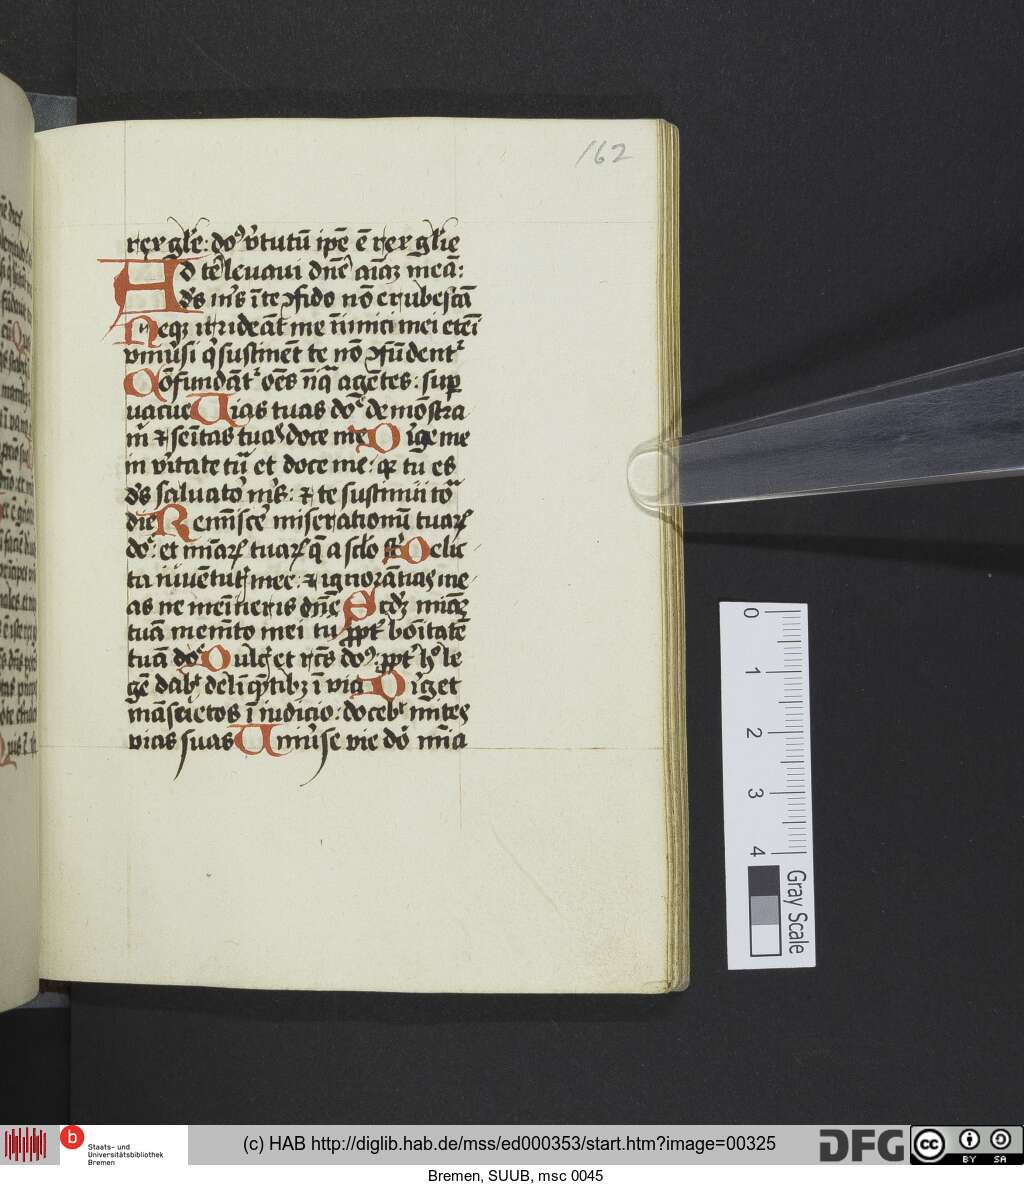 162
rex gl̄e: do² v̓tutū ip̄e ē rex gl̄ie
AD te leuaui dn̄e aīaꝫ meā:
d̄s m̄s ī te ꝯfido nō erubescā
Neqꝫ irrideāt me inimici mei eteī
vniu̓si q̓ sustinēt te nō ꝯfūdent᷑
Cōfundāt᷑ oēs inq̄ agētes: sup
uacue Uias tuas do² demōstra
m̄ ⁊ semitas tuas doce me Di̓ge me
in v̓itate tua et doce me: qꝛ tu es
d̄s saluato² m̄s: ⁊ te sustinui tō
die Reminisce² miserationū tuaꝝ
do²: et mīaꝝ tuaꝝ q̄ a sc̄lo st̄ Delic
ta iuuētut mee: ⁊ ignorātias me
as ne memineris dn̄e Scd̄ꝫ mīaꝫ
tuā memēto mei tu ꝓpt̓ bōitatē
tuā do² Dulc̓ et rc̄s do²: ꝓpt̓ h̓ le
gē dab᷑ delinq̄ntibꝫ ī via Di̓get
māsuetos ī iudicio: doceb᷑ mites
vias suas Uniu̓se vie dō mīa
0
1
2
3
4
Gray Scale
b
Staats- und
Universitätsbibliothek
Bremen
(c) HAB http://diglib.hab.de/mss/ed000353/start.htm?image=00325
DFG
cc
BY SA
Bremen, SUUB, msc 0045